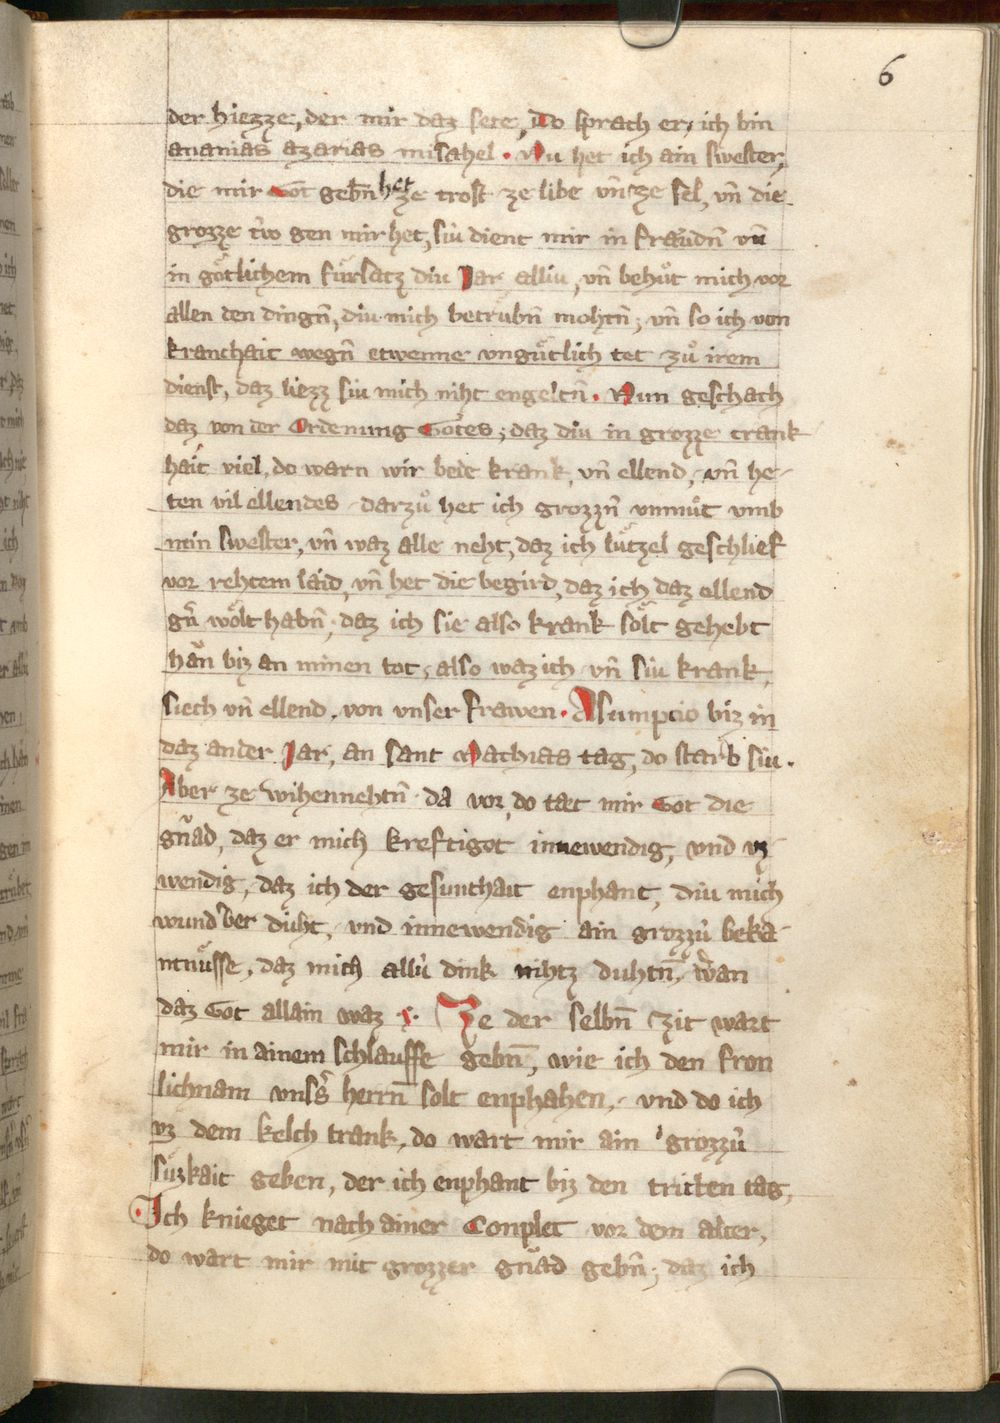 6
der hiezze, der mir daz sete, Do sprach er, ich bin
ananias azarias misahel . Nu het ich ain swester,
die mir Got gebn̄ het ze trost ze libe vn̄ ze sel, vn̄ die
grozze trẘ gen mir het, siu dient mir in fraͤudn̄ vn̄
in goͤtlichem fuͤrsatz diu Jar elliu, vn̄ behuͦt mich vor
allen den dingn̄, diu mich betruͤbn̄ mohtn̄; vn̄ so ich von
kranchait wegn̄ etwenne vnguͤtlich tet zuͦ irem
dienst, daz liezz siu mich niht engeltn̄ . Nun geschach
daz von der Ordenung Gotes; daz diu in grozze crank
hait viel, do warn wir bede krank, vn̄ ellend, vn̄ he-
ten vil ellendes darzuͦ het ich grozzn̄ vnmuͦt vmb
min swester, vn̄ waz alle neht, daz ich luͤtzel geschlief
vor rehtem laid, vn̄ het die begird, daz ich daz ellend
gn̄ woͤlt habn̄, daz ich sie also krank soͤlt gehebt
han biz an minen tot, also waz ich vn̄ siu krank,
siech vn̄ ellend, von vnser frawen . Asumpcio biz in
daz ander Jar, an sant Mathias tag, do starb siu .
Aber ze wihennehtn̄ da vor, do tæt mir Got die
gnad, daz er mich kreftigot innewendig, vnd vz
wendig, daz ich der gesunthait enphant, diu mich
wundber duht, vnd innewendig ain grozzu beka-
ntnuͤsse, daz mich allu dink nihtz duhtn̄, wan
daz Got allain waz . Ze der selbn̄ zit wart
mir in ainem schlauffe gebn̄, wie ich den fron
lichnam vnss herrn̄ solt enphahen, vnd do ich
vz dem kelch trank, do wart mir ain grozzu
suzkait geben, der ich enphant biz den tritten tag,
Ich knieget nach ainer Conplet vor dem alter,
do wart mir mit grozzer gnad gebn̄; daz ich